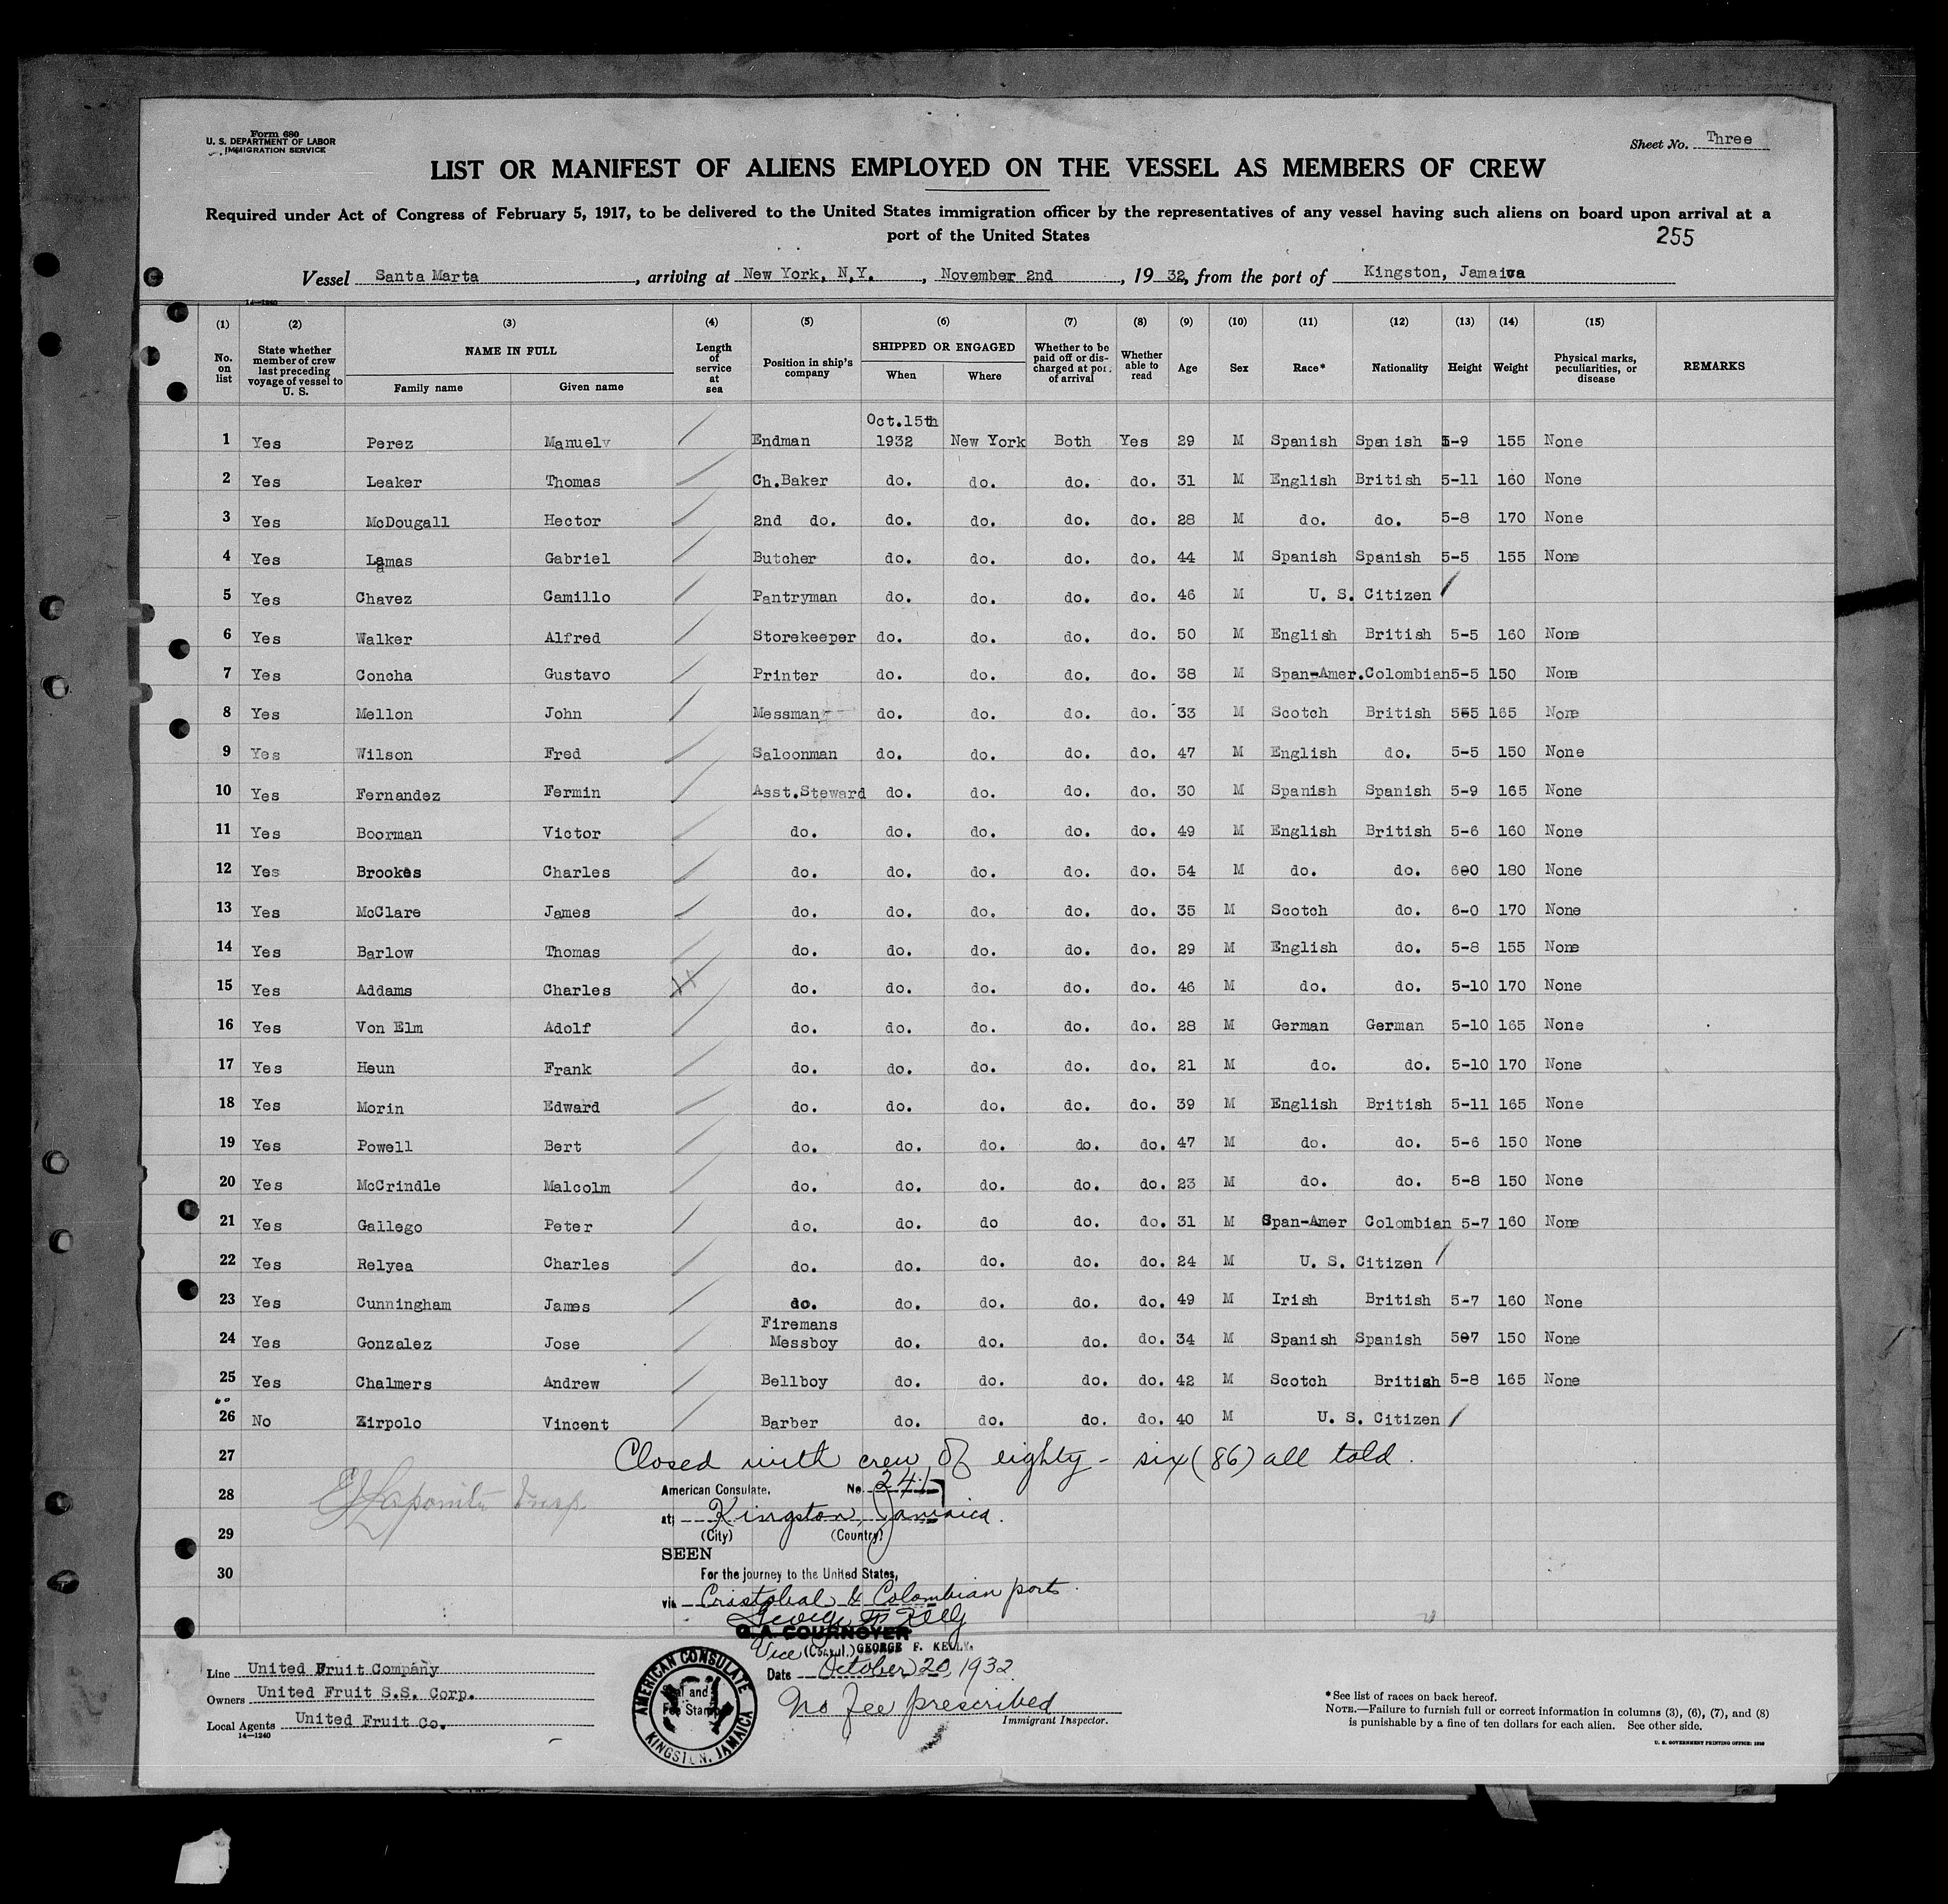 Form 680
U. S. DEPARTMENT OF LABOR
IMMIGRATION SERVICE
Sheet No. Three
LIST OR MANIFEST OF ALIENS EMPLOYED ON THE VESSEL AS MEMBERS OF CREW
Required under Act of Congress of February 5, 1917, to be delivered to the United States immigration officer by the representatives of any vessel having such aliens on board upon arrival at a
port of the United States
255
Vessel Santa Marta, arriving at New York, N.Y., November 2nd, 1932, from the port of Kingston, Jamaica
14—1240
(1) (2) (3) (4) (5) (6) (7) (8) (9) (10) (11) (12) (13) (14) (15)
No. on list State whether member of crew last preceding voyage of vessel to U. S. NAME IN FULL Family name Given name Length of service at sea Position in ship's company SHIPPED OR ENGAGED When Where Whether to be paid off or discharged at port of arrival Whether able to read Age Sex Race* Nationality Height Weight Physical marks, peculiarities, or disease REMARKS
Oct.15th
1 Yes Perez Manuel Endman 1932 New York Both Yes 29 M Spanish Spanish 5-9 155 None
2 Yes Leaker Thomas Ch.Baker do. do. do. do. 31 M English British 5-11 160 None
3 Yes McDougall Hector 2nd do. do. do. do. do. 28 M do. do. 5-8 170 None
4 Yes Lamas Gabriel Butcher do. do. do. do. 44 M Spanish Spanish 5-5 155 None
5 Yes Chavez Camillo Pantryman do. do. do. do. 46 M U. S. Citizen
6 Yes Walker Alfred Storekeeper do. do. do. do. 50 M English British 5-5 160 None
7 Yes Concha Gustavo Printer do. do. do. do. 38 M Span-Amer. Colombian 5-5 150 None
8 Yes Mellon John Messman do. do. do. do. 33 M Scotch British 5-5 165 None
9 Yes Wilson Fred Saloonman do. do. do. do. 47 M English do. 5-5 150 None
10 Yes Fernandez Fermin Asst.Steward do. do. do. do. 30 M Spanish Spanish 5-9 165 None
11 Yes Boorman Victor do. do. do. do. do. 49 M English British 5-6 160 None
12 Yes Brookes Charles do. do. do. do. do. 54 M do. do. 6-0 180 None
13 Yes McClare James do. do. do. do. do. 35 M Scotch do. 6-0 170 None
14 Yes Barlow Thomas do. do. do. do. do. 29 M English do. 5-8 155 None
15 Yes Addams Charles do. do. do. do. do. 46 M do. do. 5-10 170 None
16 Yes Von Elm Adolf do. do. do. do. do. 28 M German German 5-10 165 None
17 Yes Heun Frank do. do. do. do. do. 21 M do. do. 5-10 170 None
18 Yes Morin Edward do. do. do. do. do. 39 M English British 5-11 165 None
19 Yes Powell Bert do. do. do. do. do. 47 M do. do. 5-6 150 None
20 Yes McCrindle Malcolm do. do. do. do. do. 23 M do. do. 5-8 150 None
21 Yes Gallego Peter do. do. do do. do. 31 M Span-Amer Colombian 5-7 160 None
22 Yes Relyea Charles do. do. do. do. do. 24 M U. S. Citizen
23 Yes Cunningham James do. do. do. do. do. 49 M Irish British 5-7 160 None
Firemans
24 Yes Gonzalez Jose Messboy do. do. do. do. 34 M Spanish Spanish 5-7 150 None
25 Yes Chalmers Andrew Bellboy do. do. do. do. 42 M Scotch British 5-8 165 None
26 No Zirpolo Vincent Barber do. do. do. do. 40 M U. S. Citizen
27 Closed with crew of eighty-six (86) all told.
28 American Consulate, No. 241
at Kingston, Jamaica.
29 (City) (Country)
SEEN
30 For the journey to the United States,
via Cristobal & Colombian ports.
George F. Kelly
G. A. COURNOYER
Vice (Consul.) GEORGE F. KELLY.
Date October 20, 1932
No fee prescribed
Immigrant Inspector.
AMERICAN CONSULATE
Seal and
Fee Stamp
KINGSTON, JAMAICA
Line United Fruit Company
Owners United Fruit S.S. Corp.
Local Agents United Fruit Co.
14—1240
* See list of races on back hereof.
NOTE.—Failure to furnish full or correct information in columns (3), (6), (7), and (8)
is punishable by a fine of ten dollars for each alien. See other side.
U. S. GOVERNMENT PRINTING OFFICE: